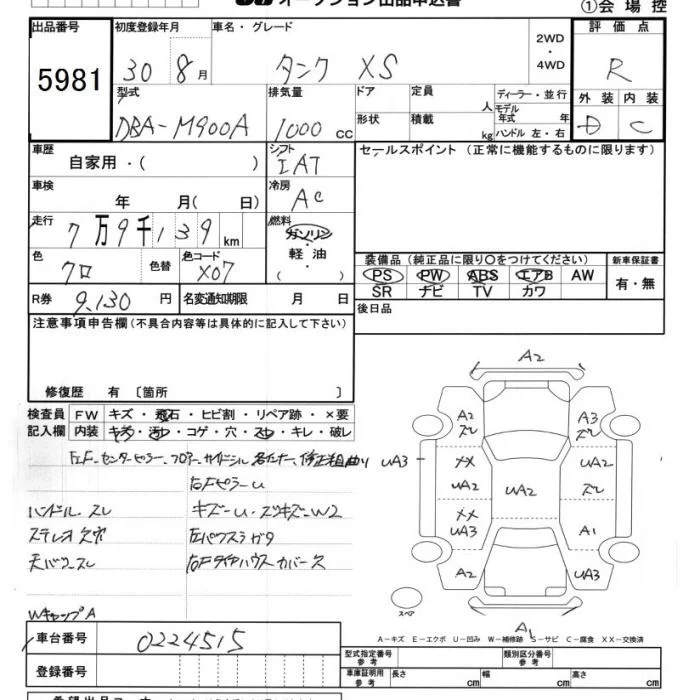 オークション出品申込書
①会場控
出品番号 5981
初度登録年月 30 8月
車名・グレード タンク XS
2WD・4WD
評価点 R
外装 D 内装 C
型式 DBA-M900A
排気量 1000 CC
ドア 形状
定員 人
積載 kg
ディーラー・並行
モデル年式 年
ハンドル 左・右
車歴 自家用・( )
シフト IAT
セールスポイント(正常に機能するものに限ります)
車検 年 月( 日)
冷房 AC
走行 7万9千139km
燃料 ガソリン・軽油・( )
色 クロ 色替 色コード X07
装備品(純正品に限り○をつけてください)
PS PW ABS エアB AW
SR ナビ TV カワ
新車保証書 有・無
R券 9,130円
名変通知期限 月 日
後日品
注意事項申告欄(不具合内容等は具体的に記入して下さい)
修復歴 有 〔箇所 〕
検査員記入欄
FW キズ・飛石・ヒビ割・リペア跡・×要
内装 キズ・汚れ・コゲ・穴・スレ・キレ・破レ
右Fピラーu
ハンドル スレ キズーu・スリキズーW2
ステレオ欠
天バリースレ 右Fタイヤハウスカバー欠
WキャップA
A2
A2 ズレ
A3 ズレ
UA3
XX UA2
UA2
UA2
ズレ
XX UA3
A1
A2
UA3
スペア
A1
A-キズ E-エクボ U-凹み W-補修跡 S-サビ C-腐食 XX-交換済
車台番号 0224515
型式指定番号 参考
類別区分番号 参考
登録番号
車庫証明用 参考 長さ cm 幅 cm 高さ cm